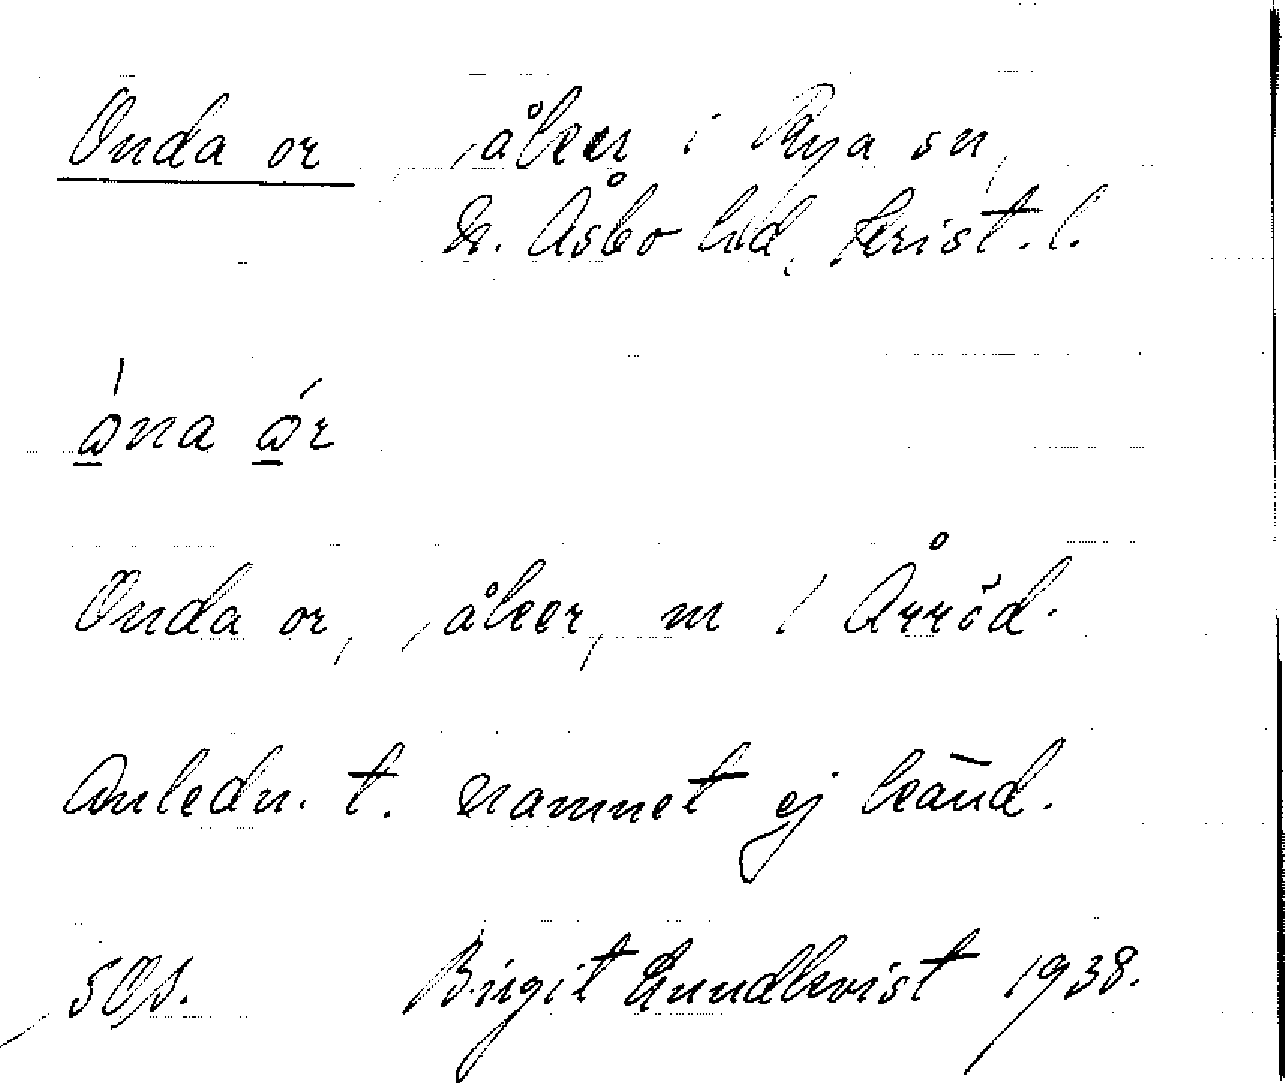 Onda or , åker i Rya sn,
N. Åsbo hd, Krist. l.
ɷ̀na ɷ́r
Onda or, , åker, m / Årröd.
Anledn. t. namnet ej känd.
Birgit Lundkvist 1938.